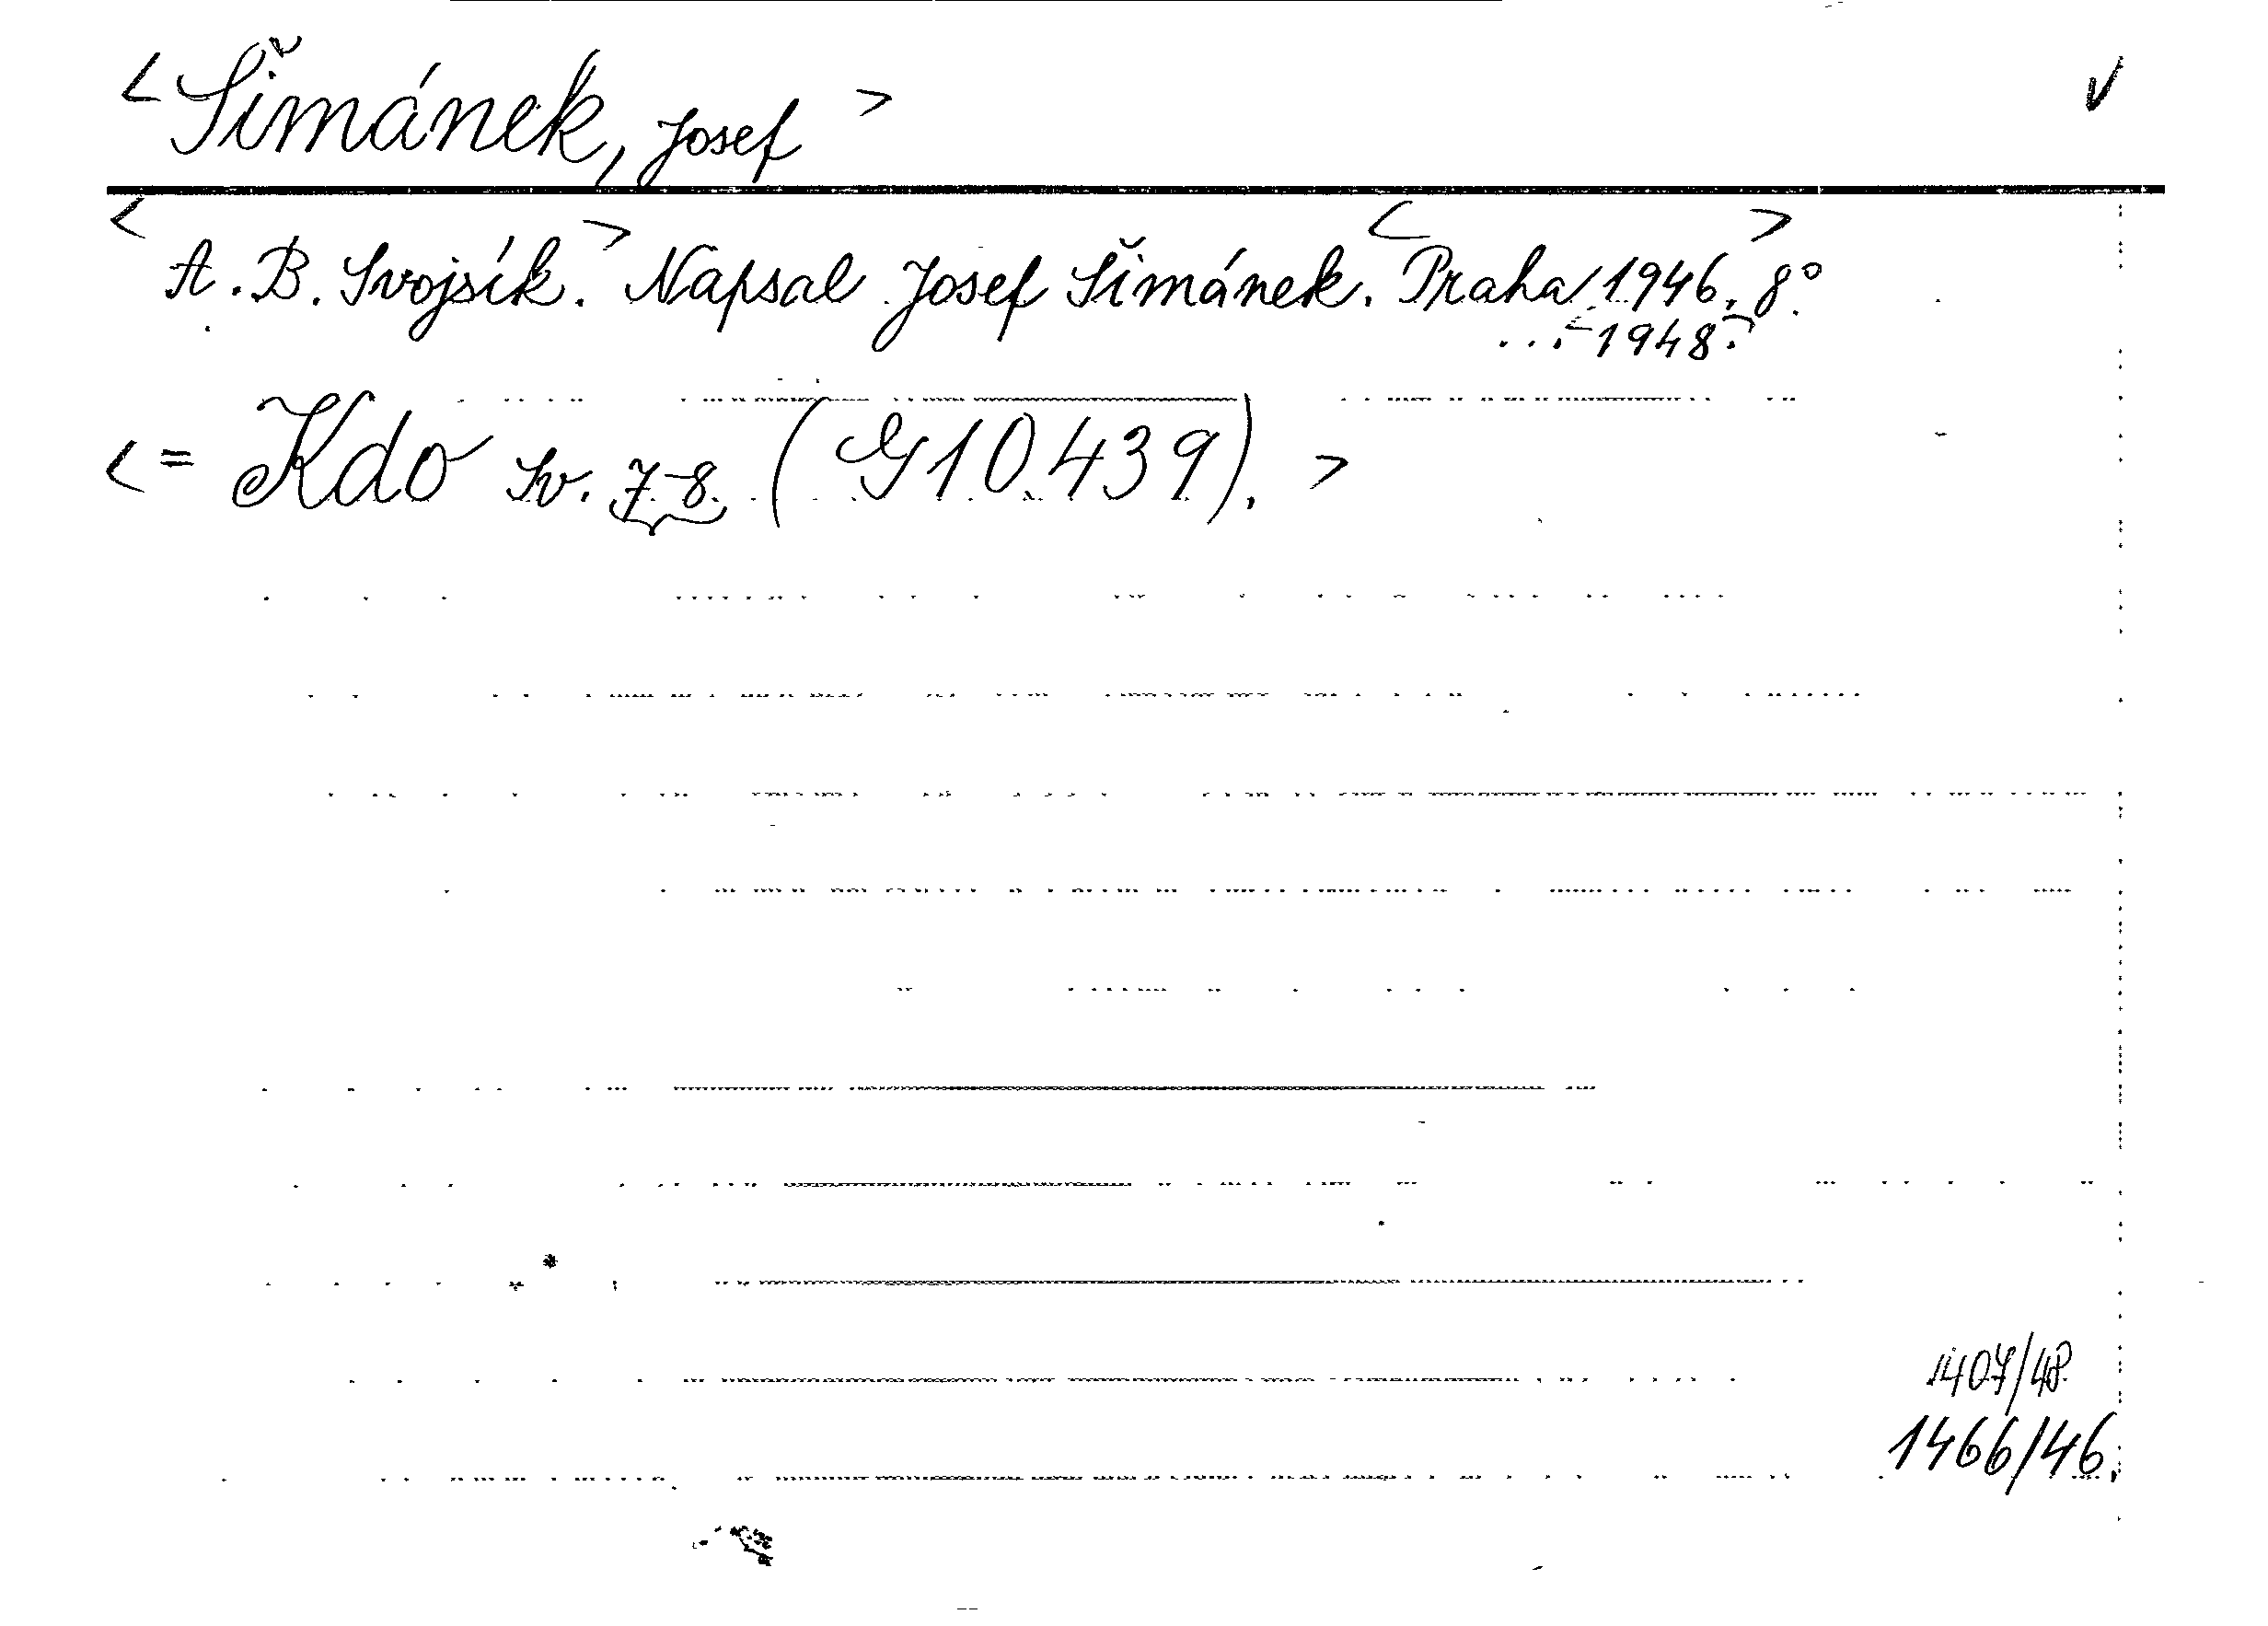 <Šimánek, Josef> √
<A. B. Svojsík.> Napsal Josef Šimánek. <Praha 1946.> 8°.
...<1948.>
<= Kdo sv. 7-8 (G10.439).>
1407/48
1466/46.